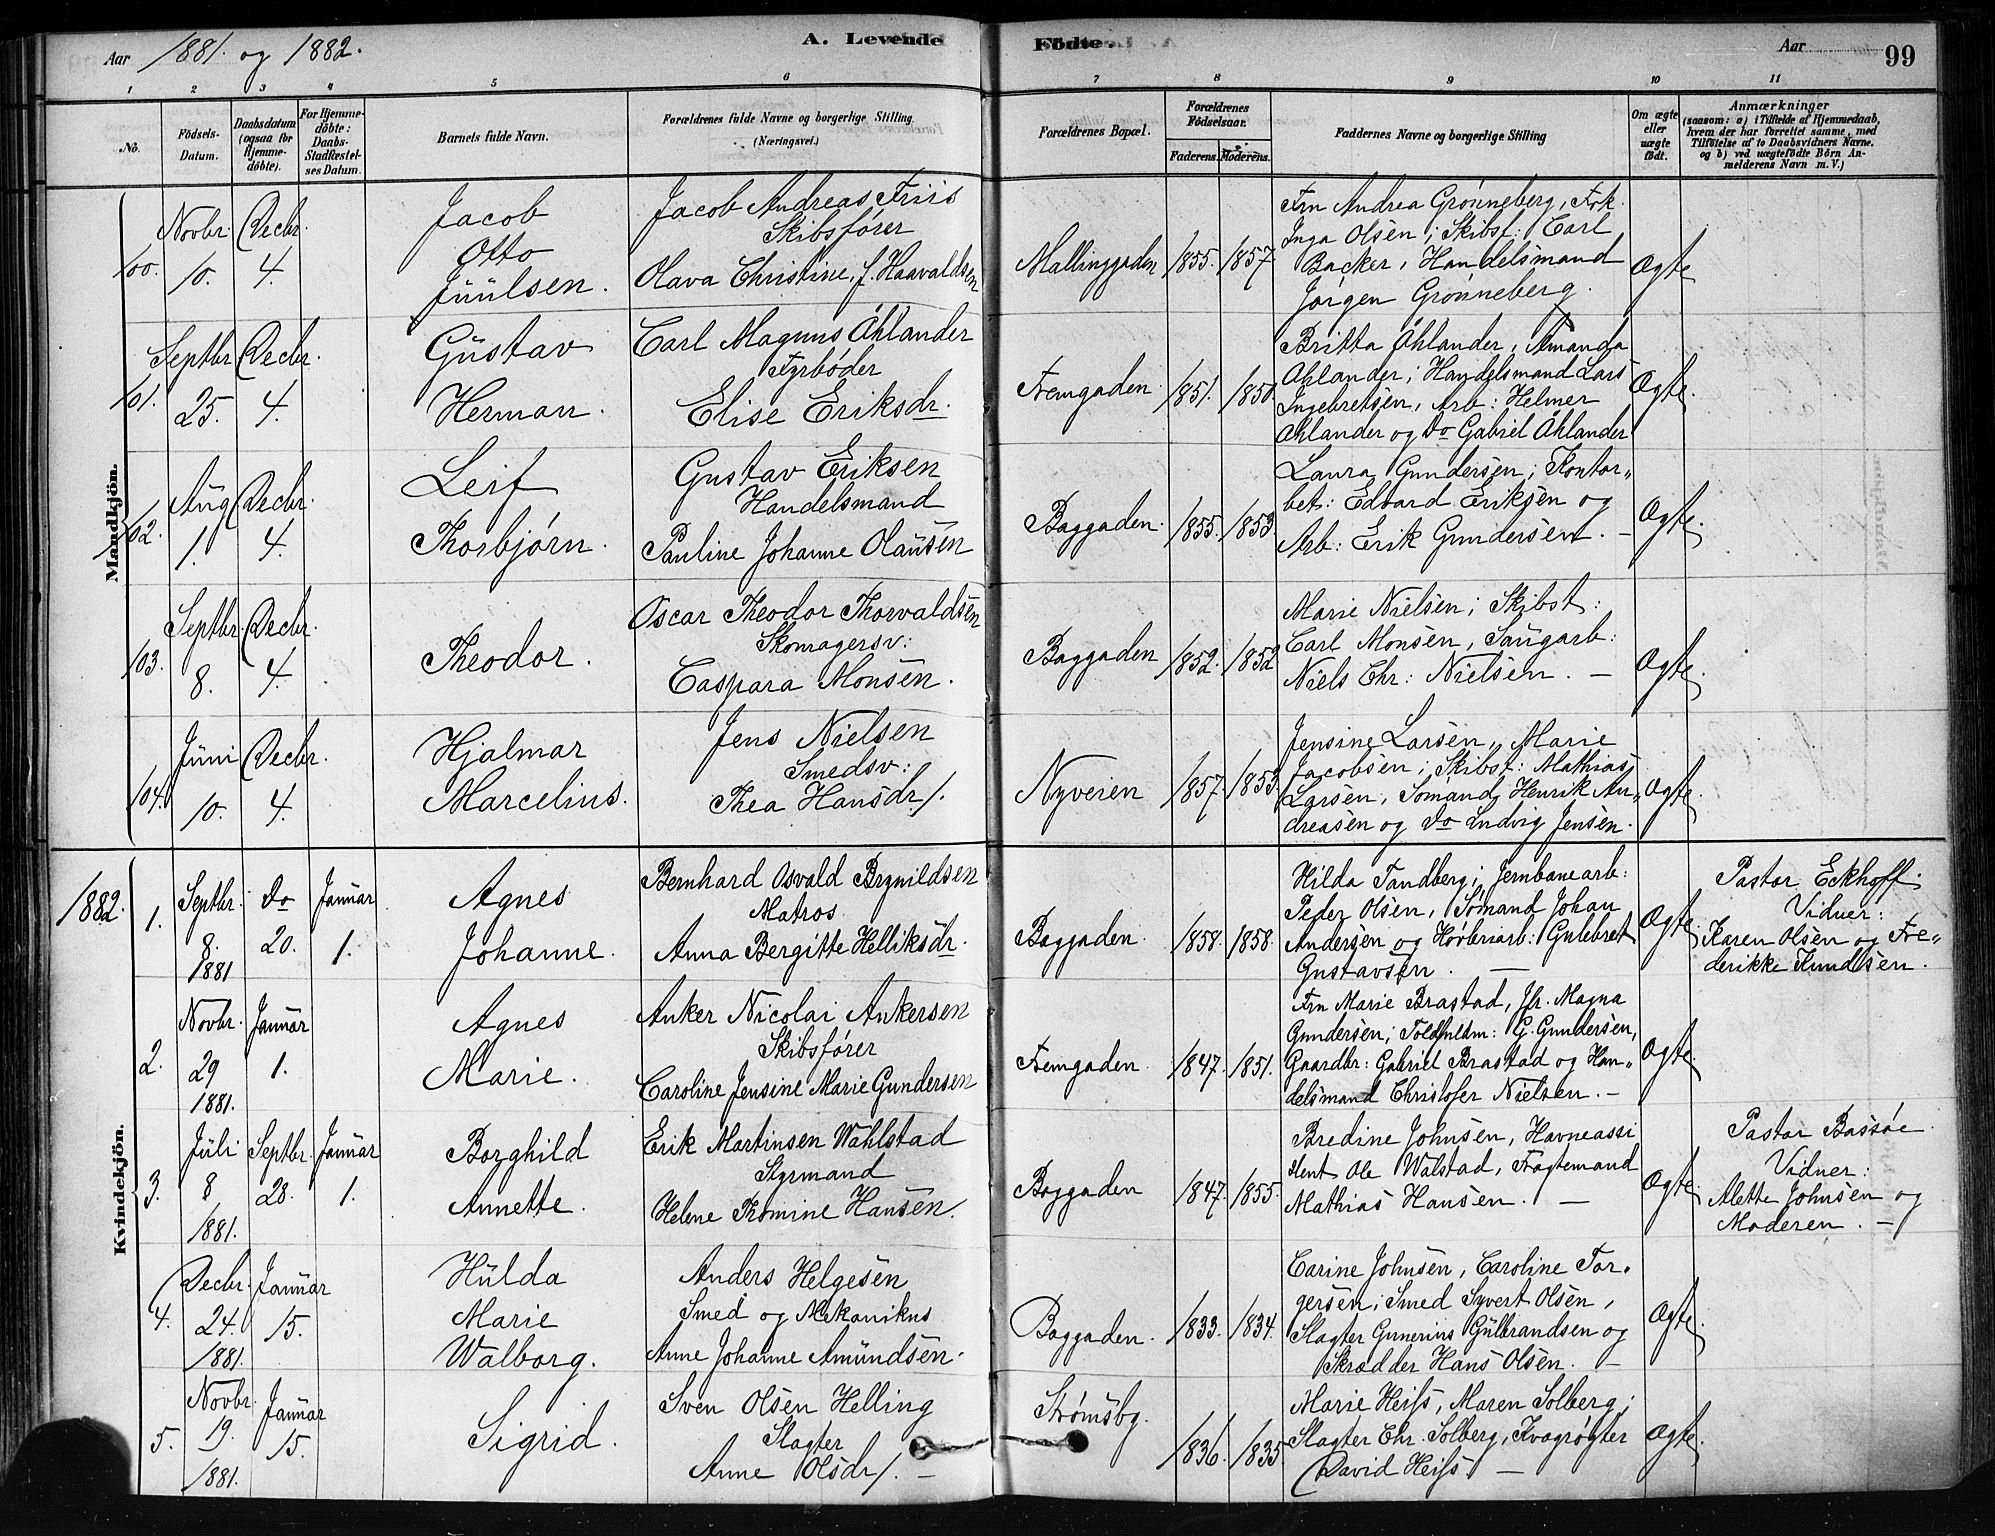 Aar 1881. og 1882.
A. Levende
Födte.
Aar
99
1 2 3 4 5 6 7 8 9 10 11
No.
Födsels-
Datum.
Daabsdatum
(ogsaa for
Hjemme-
döbte).
For Hjemme-
döbte:
Daabs-
Stadfæstel-
ses Datum.
Barnets fulde Navn.
Forældrenes fulde Navne og borgerlige Stilling
(Næringsvei.)
Forældrenes Bopæl.
Forældrenes
Födselsaar.
Faderens. Moderens.
Faddernes Navne og borgerlige Stilling
Om ægte
eller
uægte
födt.
Anmærkninger
(saasom: a) i Tilfælde af Hjemmedaab,
hvem der har forrettet samme, med
Tilföielse af to Daabsvidners Navne,
og b) ved uægtefödte Börn An-
melderens Navn m. V.)
Mandkjön.
100.
Novbr.
10.
Decbr.
4.
Jacob
Otto
Juulsen.
Jacob Andreas Friis
Skibsfører
Olava Christine, f. Haavaldsen
Mallinggaden
1855.
1857
Fru Andrea Grønneberg, Frk.
Inga Olsen; Skibsf: Carl
Backer, Handelsmand
Jørgen Grønneberg.
Ægte
101.
Septbr.
25.
Decbr.
4.
Gustav
Herman.
Carl Magnus Åhlander
Fyrbøder
Elise Eriksdr.
Fremgaden.
1851.
1850.
Britta Åhlander, Amanda
Åhlander; Handelsmand Lars
Ingebretsen, Arb: Helmer
Åhlander og Do Gabriel Åhlander
Ægte.
102.
Aug
1.
Decbr.
4.
Leif
Thorbjørn.
Gustav Eriksen
Handelsmand
Pauline Johanne Olausen
Baggaden.
1855.
1853
Laura Gundersen; Kontor„
bet: Edvard Eriksen og
Arb: Erik Gundersen. —
Ægte.
103.
Septbr.
8.
Decbr.
4.
Theodor.
Oscar Theodor Thorvaldsen
Skomagersv:
Caspara Monsen.
Baggaden
1852.
1852
Marie Nielsen; Skibst:
Carl Monsen, Saugarb:
Niels Chr: Nielsen. —
Ægte.
104.
Juni
10.
Decbr.
4.
Hjalmar
Marcelius.
Jens Nielsen
Smedsv:
Thea Hansdr/.
Nyveien
1857.
1853.
Jensine Larsen, Marie
Jacobsen; Skibst: Mathias
Larsen, Sømand Henrik An„
dreasen og Do Ludvig Jensen.
Ægte.
1882.
Kvindekjön.
1.
Septbr.
8.
1881
Do
20.
Januar
1.
Agnes
Johanne.
Bernhard Osvald Brynildsen
Matros
Anna Bergitte Helliksdr.
Baggaden.
1858.
1858.
Hilda Tandberg; Jernbanearb:
Peder Olsen, Sømand Johan
Andersen og Høvleriarb: Gulebret
Gustavsen. —
Ægte.
Pastor Eckhoff.
Vidner:
Karen Olsen og Fre„
derikke Knudsen.
2.
Novbr.
29
1881.
Januar
1.
Agnes
Marie.
Anker Nicolai Ankersen
Skibsfører
Caroline Jensine Marie Gundersen
Fremgaden.
1847.
1851.
Fru Marie Brastad, Jfr. Magna
Gundersen; Toldfuldm: G. Gundersen,
Gaardbr: Gabriel Brastad og Han„
delsmand Christofer Nielsen. —
Ægte.
3.
Juli
8
1881.
Septbr.
28.
Januar
1.
Borghild
Annette.
Erik Martinsen Wahlstad
Styrmand
Helene Tromine Hansen.
Baggaden
1847.
1855.
Bredine Johnsen, Havneassi
stent Ole Walstad, Fragtemand
Mathias Hansen. —
Ægte.
Pastor Bassøe.
Vidner:
Alette Johnsen og
Moderen. —
4.
Decbr.
24.
1881.
Januar
15.
Hulda
Marie
Walborg.
Anders Helgesen
Smed og Mekanikus
Anne Johanne Amundsen.
Baggaden.
1833.
1834.
Carine Johnsen, Caroline Tor„
gersen; Smed Syvert Olsen,
Slagter Gunerius Gulbrandsen og
Skrædder Hans Olsen. —
Ægte.
5.
Novbr.
19.
1881.
Januar
15.
Sigrid.
Sven Olsen Helling
Slagter
Anne Olsdr/. —
Strømsbg.
1836.
1835.
Marie Heiss, Maren Solberg;
Slagter Chr. Solberg, Kvægrøgter
David Heiss. —
Ægte.